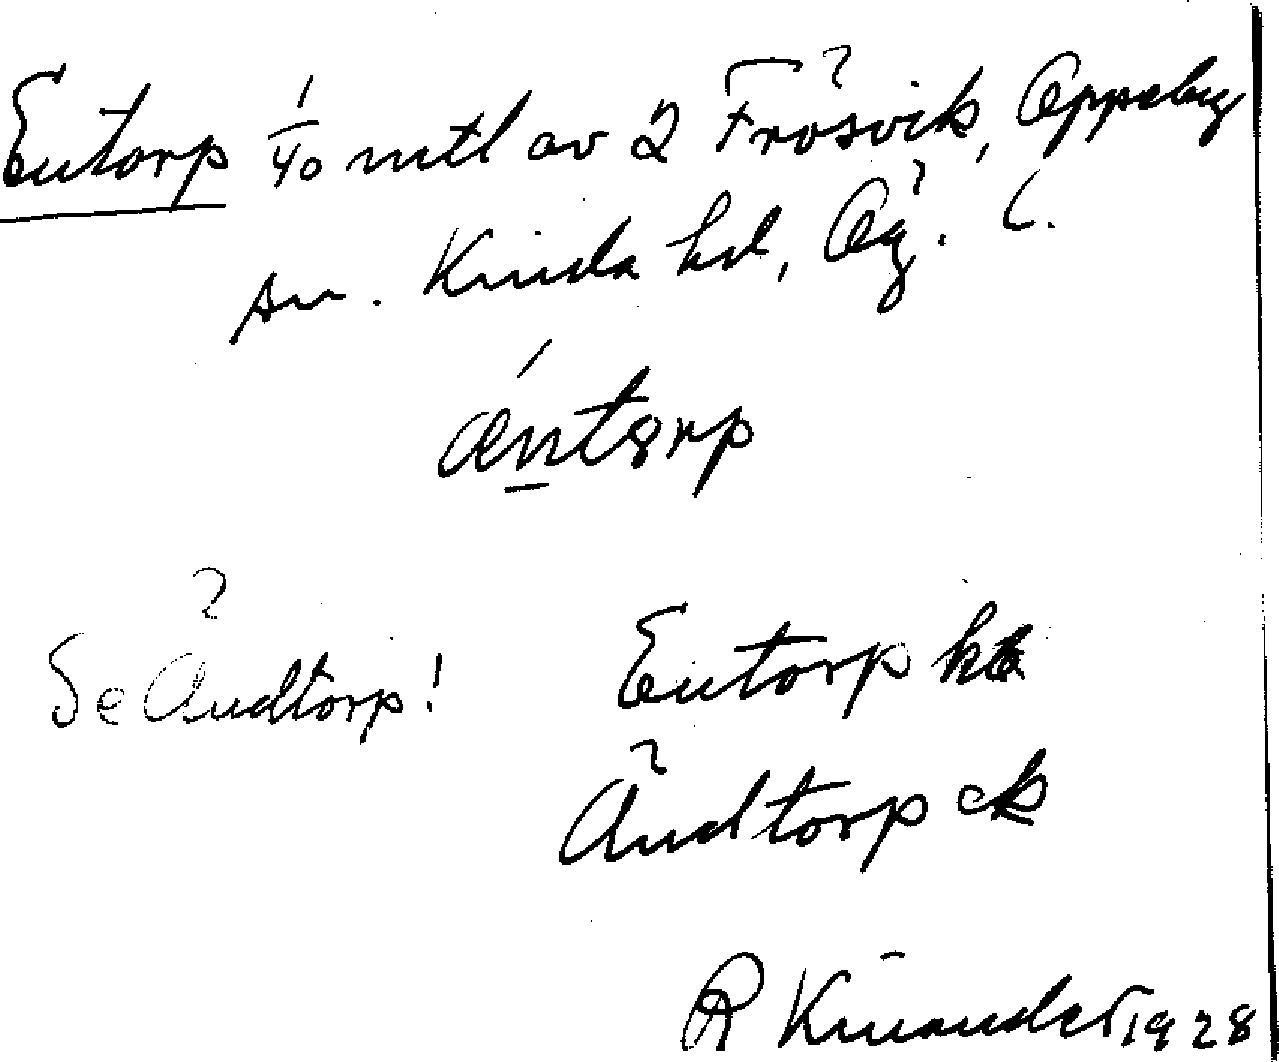 Entorp 1/40 mtl av 2 Frösvik, Oppeby
sn. Kinda hd, Ög. L.
ǽntȣrp
Se Ändtorp!
Entorp kb
Ändtorp ek
R Kinander 1928